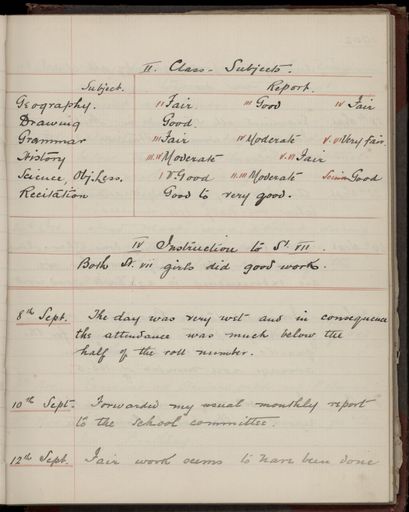 II. Class-Subjects.
Subject. Report.
Geography. II Fair III Good IV Fair
Drawing Good.
Grammar III Fair IV Moderate V.VI Very fair.
History III.IV Moderate V.VI Fair
Science, Obj. Less. I V. Good II.III Moderate Good
Recitation Good to very good.
IV Instruction to St. VII
Both St. VII girls did good work.
8th Sept. The day was very wet and in consequence
the attendance was much below the
half of the roll number.
10th Sept. Forwarded my usual monthly report
to the school committee.
12th Sept. Fair work seems to have been done